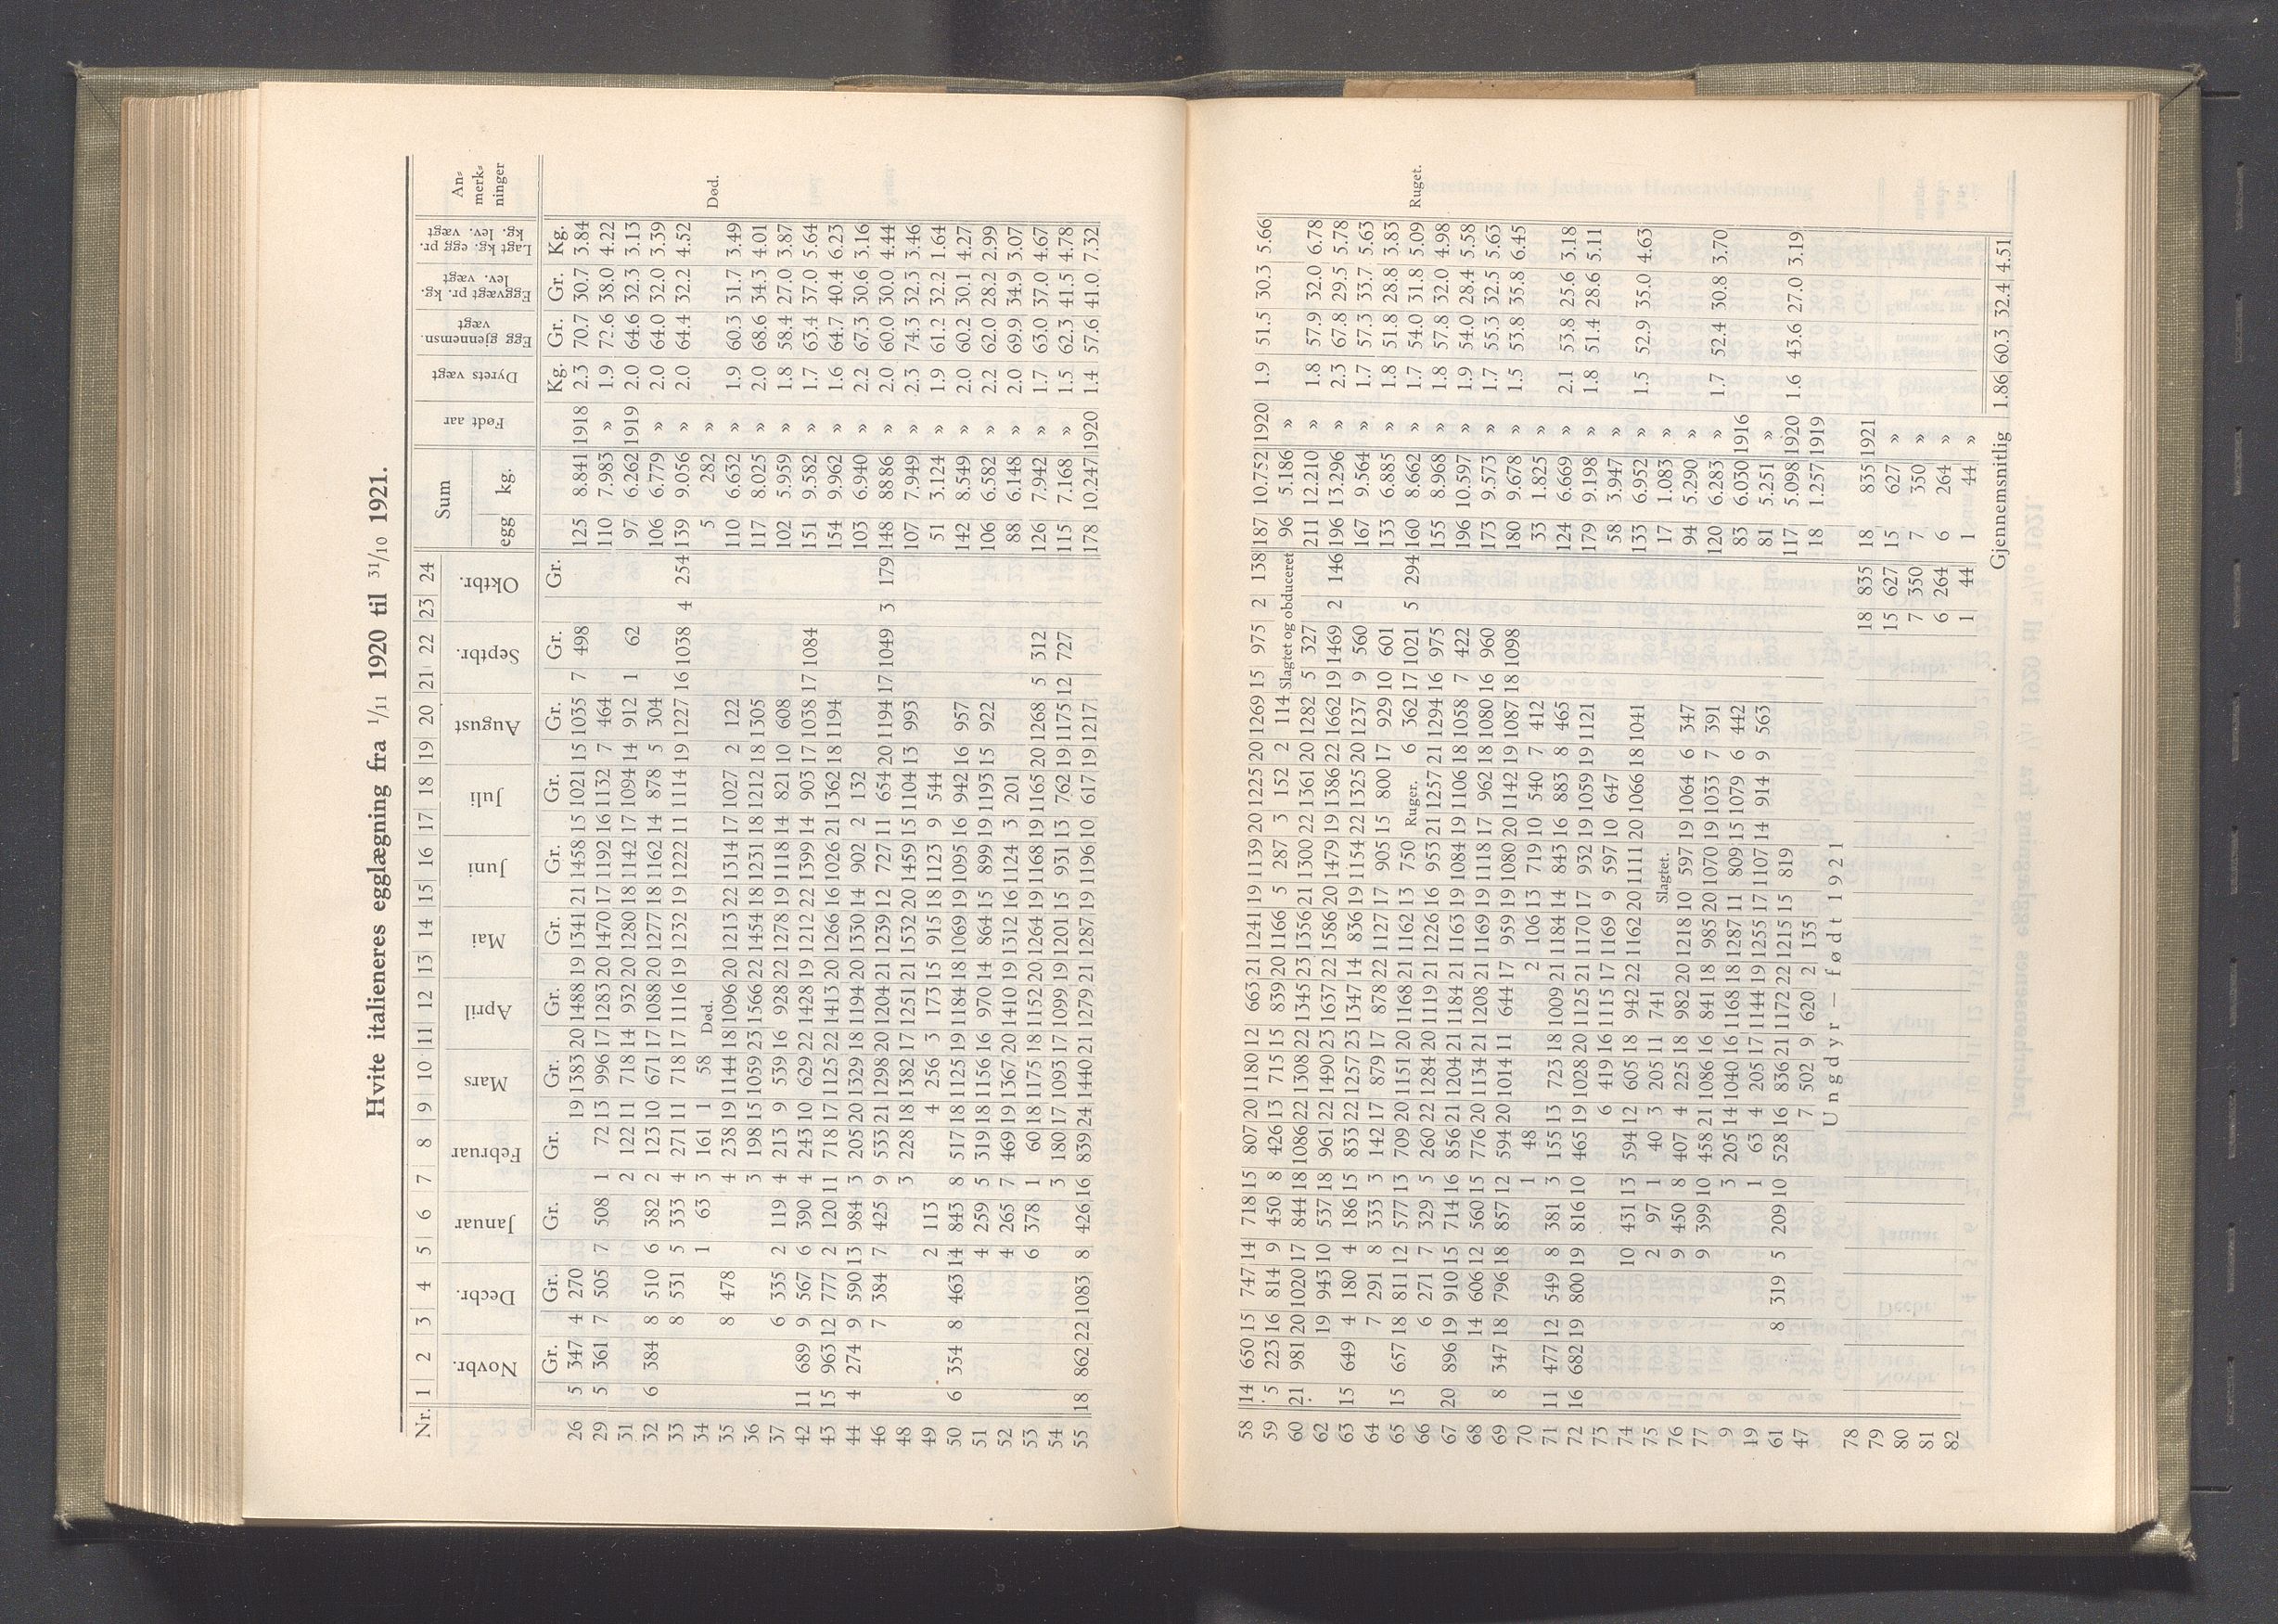 Hvite italieneres egglægning fra 1/11 1920 til 31/10 1921.
Nr. 1 2 3 4 5 6 7 8 9 10 11 12 13 14 15 16 17 18 19 20 21 22 23 24 Sum Født aar Dyrets vægt Egg gjennemsn. vægt Eggvægt pr. kg. lev. vægt Lagt kg. egg pr. kg. lev. vægt An-merk-ninger
Novbr. Decbr. Januar Februar Mars April Mai Juni Juli August Septbr. Oktbr. egg kg.
Gr. Gr. Gr. Gr. Gr. Gr. Gr. Gr. Gr. Gr. Gr. Gr. Kg. Gr. Gr. Kg.
26 5 347 4 270 19 1383 20 1488 19 1341 21 1458 15 1021 15 1035 7 498 125 8.841 1918 2.3 70.7 30.7 3.84
29 5 361 7 505 7 508 1 72 13 996 17 1283 20 1470 17 1192 16 1132 7 464 110 7.983 » 1.9 72.6 38.0 4.22
31 2 122 11 718 14 932 20 1280 18 1142 17 1094 14 912 1 62 97 6.262 1919 2.0 64.6 32.3 3.13
32 6 384 8 510 6 382 2 123 10 671 17 1088 20 1277 18 1162 14 878 5 304 106 6.779 » 2.0 64.0 32.0 3.39
33 8 531 5 333 4 271 11 718 17 1116 19 1232 19 1222 11 1114 19 1227 16 1038 4 254 139 9.056 » 2.0 64.4 32.2 4.52
34 1 63 3 161 1 58 Død. 5 282 » Død.
35 8 478 4 238 19 1144 18 1096 20 1213 22 1314 17 1027 2 122 110 6.632 » 1.9 60.3 31.7 3.49
36 3 198 15 1059 23 1566 22 1454 18 1231 18 1212 18 1305 117 8.025 » 2.0 68.6 34.3 4.01
37 6 335 2 119 4 213 9 539 16 928 22 1278 19 1118 14 821 10 608 102 5.959 » 1.8 58.4 27.0 3.87
42 11 689 9 567 6 390 4 243 10 629 22 1428 19 1212 22 1399 14 903 17 1038 17 1084 151 9.582 » 1.7 63.4 37.0 5.64
43 15 963 12 777 2 120 11 718 17 1125 22 1413 20 1266 16 1026 21 1362 18 1194 154 9.962 » 1.6 64.7 40.4 6.23
44 4 274 9 590 13 984 3 205 20 1329 18 1194 20 1330 14 902 2 132 103 6.940 » 2.2 67.3 30.6 3.16
46 7 384 7 425 9 533 21 1298 20 1204 21 1239 12 727 11 654 20 1194 17 1049 3 179 148 8886 » 2.0 60.0 30.0 4.44
48 3 228 18 1382 17 1251 21 1532 20 1459 15 1104 13 993 107 7.949 » 2.3 74.3 32.3 3.46
49 2 113 4 256 3 173 15 915 18 1123 9 544 51 3.124 » 1.9 61.2 32.2 1.64
50 6 354 8 463 14 843 8 517 18 1125 19 1184 18 1069 19 1095 16 942 16 957 142 8.549 » 2.0 60.2 30.1 4.27
51 4 259 5 319 18 1156 16 970 14 864 15 899 19 1193 15 922 106 6.582 » 2.2 62.0 28.2 2.99
52 4 265 7 469 19 1367 20 1410 19 1312 16 1124 3 201 88 6.148 » 2.0 69.9 34.9 3.07
53 6 378 1 60 18 1175 18 1152 20 1264 19 1168 19 1165 20 1268 5 312 126 7.942 » 1.7 63.0 37.0 4.67
54 3 180 17 1093 17 1099 19 1201 15 931 13 762 19 1175 12 727 115 7.168 » 1.5 62.3 41.5 4.78
55 18 862 22 1083 8 426 16 839 24 1440 21 1279 21 1287 19 1196 10 617 19 1217 178 10.247 1920 1.4 57.6 41.0 7.32
58 14 650 15 747 14 718 15 807 20 1180 12 663 21 1241 19 1139 20 1225 20 1269 15 975 2 138 187 10.752 1920 1.9 51.5 30.3 5.66
59 5 223 16 814 9 450 8 426 13 715 15 839 20 1166 5 287 3 152 2 114 Slagtet og obduceret 96 5.186 »
60 21 981 20 1020 17 844 18 1086 22 1308 22 1345 23 1356 21 1300 22 1361 20 1282 5 327 211 12.210 » 1.8 57.9 32.0 6.78
62 19 943 10 537 18 961 22 1490 23 1637 22 1586 20 1479 19 1386 22 1662 19 1469 2 146 196 13.296 » 2.3 67.8 29.5 5.78
63 15 649 4 180 4 186 15 833 22 1257 23 1347 14 836 19 1154 22 1325 20 1237 9 560 167 9.564 » 1.7 57.3 33.7 5.63
64 7 291 8 333 3 142 17 879 17 878 22 1127 17 905 15 800 17 929 10 601 133 6.885 » 1.8 51.8 28.8 3.83
65 15 657 18 811 12 577 13 709 20 1151 20 1168 21 1162 13 750 Ruger. 6 362 17 1021 5 294 160 8.662 » 1.7 54.0 31.8 5.09 Ruget.
66 6 271 7 329 5 260 22 1284 20 1119 21 1226 16 953 21 1257 21 1294 16 975 155 8.968 » 1.8 57.8 32.0 4.98
67 20 896 19 910 15 714 16 856 21 1204 21 1184 21 1163 19 1084 19 1106 18 1058 7 422 196 10.597 » 1.9 54.0 28.4 5.58
68 14 606 12 560 15 776 20 1134 21 1208 21 1169 19 1118 17 962 18 1080 16 960 173 9.573 » 1.7 55.3 32.5 5.63
69 8 347 18 796 18 857 12 594 20 1014 11 644 17 959 19 1080 20 1142 19 1087 18 1098 180 9.678 » 1.5 53.8 35.8 6.45
70 1 48 2 106 13 719 10 540 7 412 33 1.825 »
71 11 477 12 549 8 381 3 155 13 723 18 1009 21 1184 14 843 16 883 8 465 124 6.669 » 2.1 53.8 25.6 3.18
72 16 682 19 800 19 816 10 465 19 1028 20 1125 21 1170 17 932 19 1059 19 1121 179 9.198 » 1.8 51.4 28.6 5.11
73 6 419 16 1115 17 1169 9 597 10 647 58 3.947 »
74 10 431 13 594 12 605 18 942 22 1162 20 1111 20 1066 18 1041 133 6.952 » 1.5 52.9 35.0 4.63
75 2 97 1 40 3 205 11 741 Slagtet. 17 1.083 »
76 9 450 8 407 4 225 18 982 20 1218 10 597 19 1064 6 347 94 5.290 »
77 9 399 10 458 21 1086 16 841 18 985 20 1070 19 1033 7 391 120 6.283 » 1.7 52.4 30.8 3.70
9 3 205 14 1040 16 1168 18 1287 11 809 15 1079 6 442 83 6.030 1916
19 1 63 4 205 17 1144 19 1255 17 1107 14 914 9 563 81 5.251 »
61 8 319 5 209 10 528 16 836 21 1172 22 1215 15 819 117 5.098 1920 1.6 43.6 27.0 3.19
47 7 502 9 620 2 135 18 1.257 1919
Ungdyr — født 1921
78 18 835 18 835 1921
79 15 627 15 627 »
80 7 350 7 350 »
81 6 264 6 264 »
82 1 44 1 44 »
Gjennemsnitlig 1.86 60.3 32.4 4.51